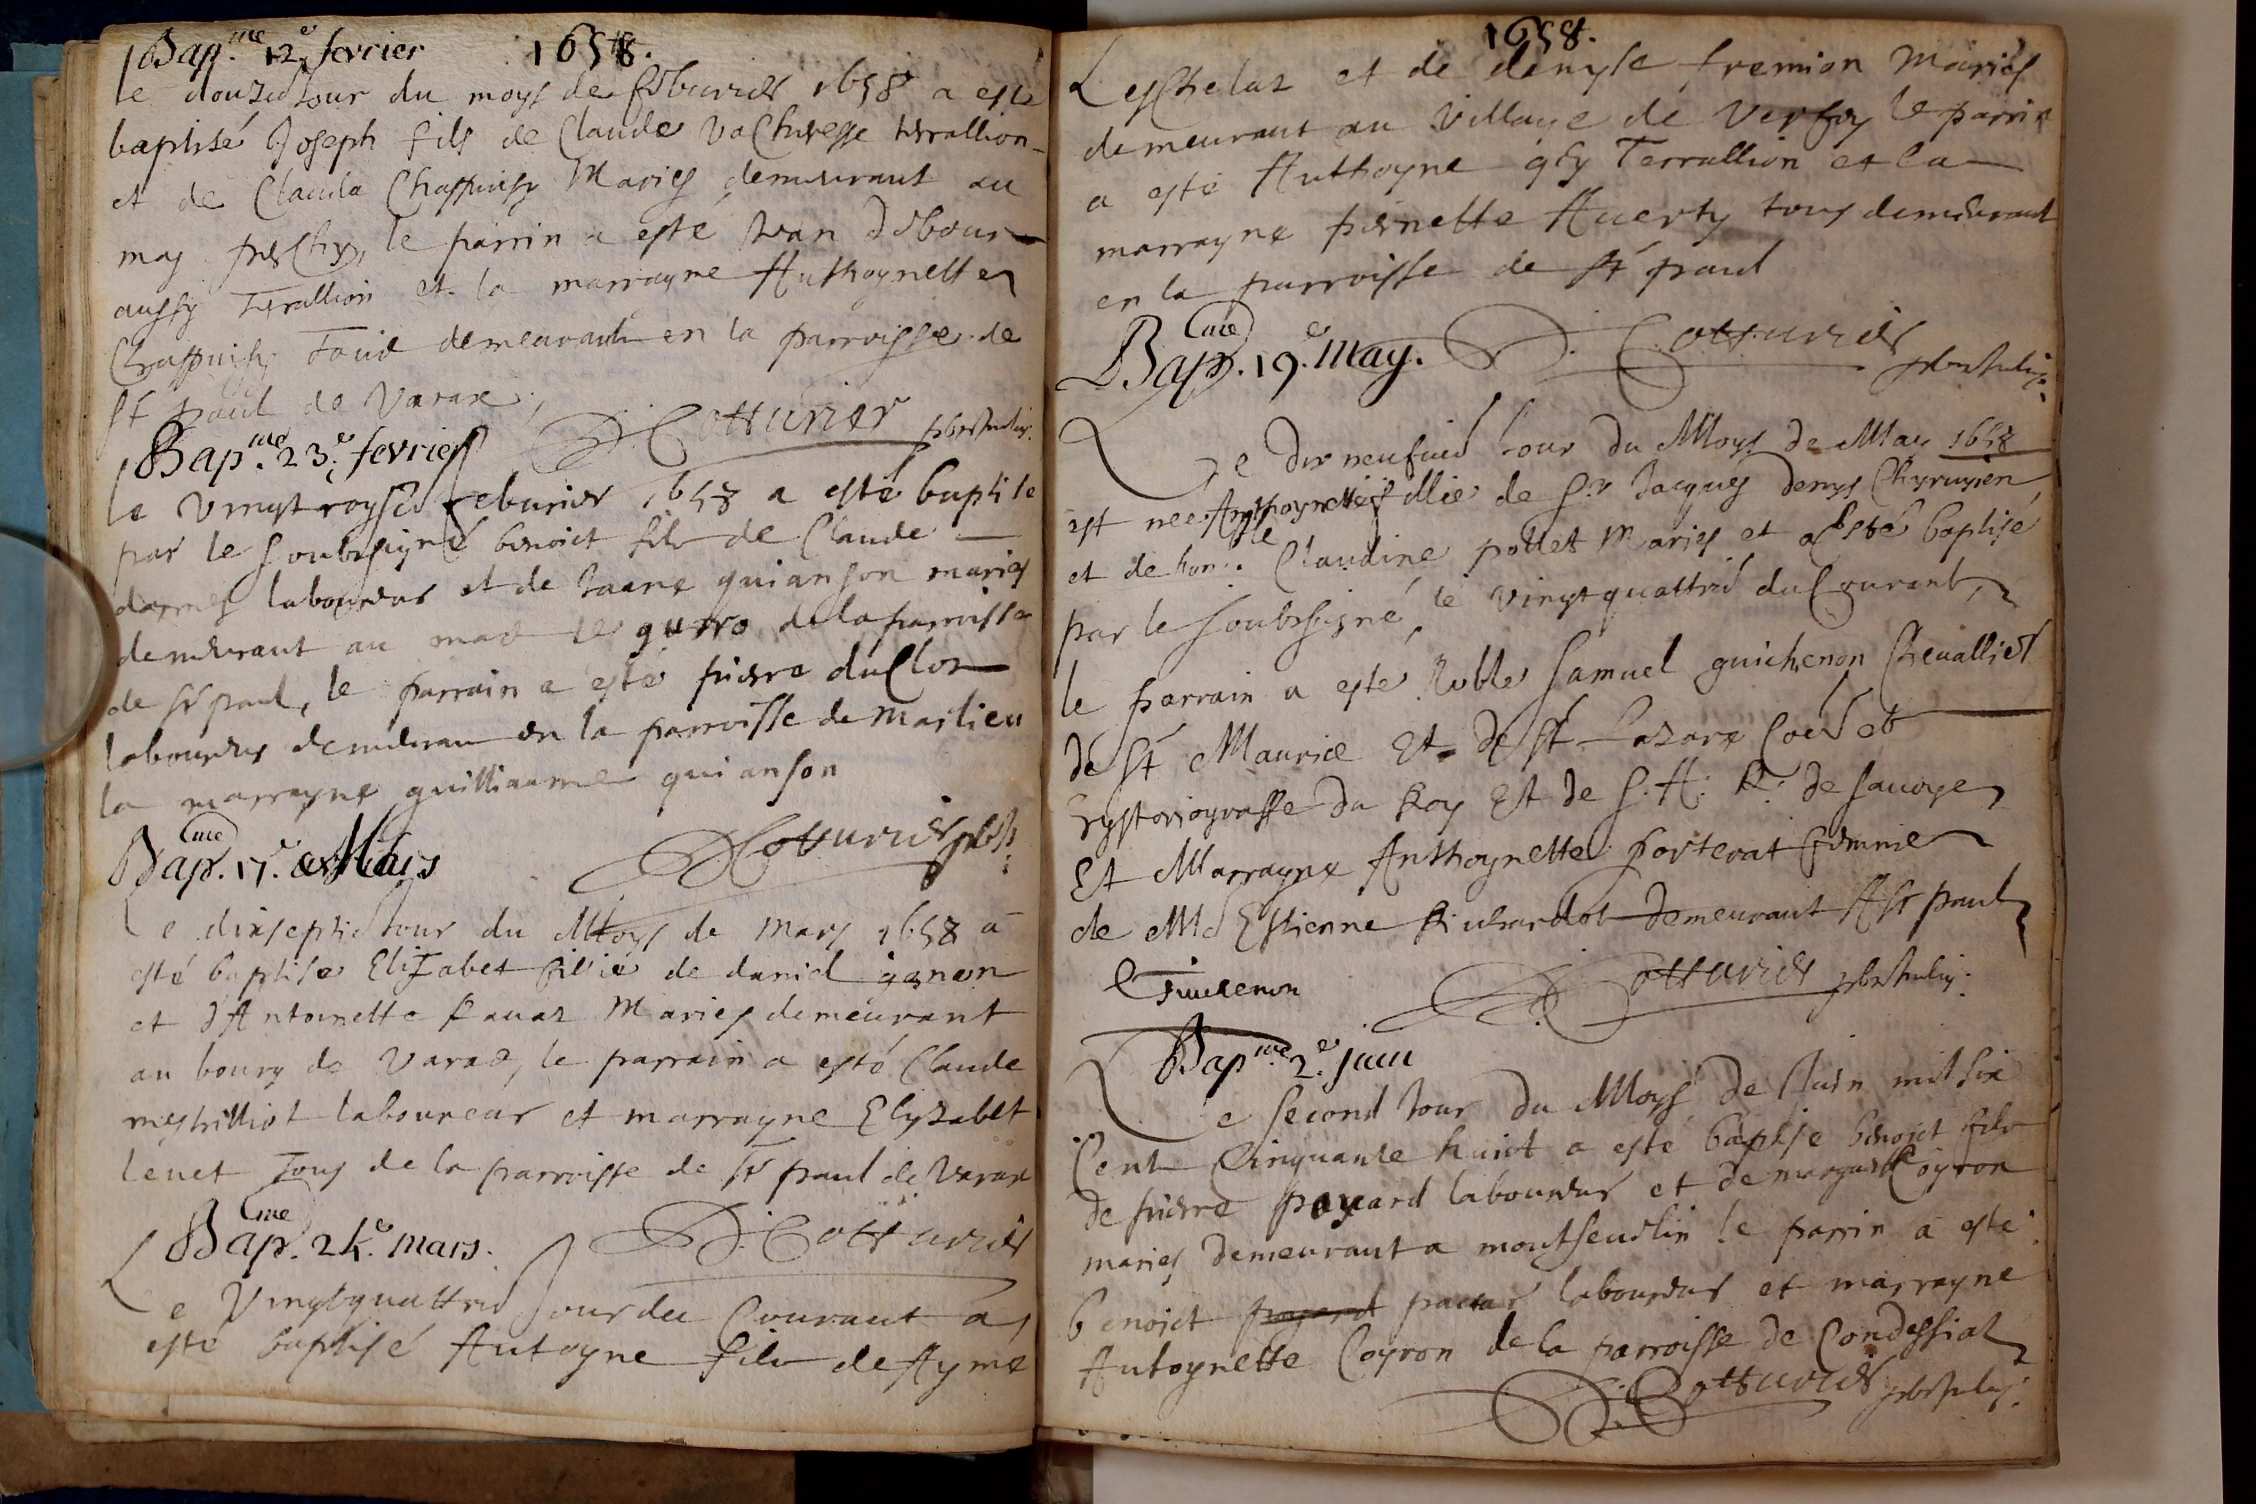 Bap.me 12e. fevrier 1658.
le douzie Jour du moys de febvrier 1658 a este
baptisé Joseph fils de Claude Vacheresse terrallion
et de Clauda Chappuisy Maries demeurant au
may le parrin a esté Jean Debour
aussy terallion et la marrayne Anthoynette
Chappuisy tous demeurant en la parroisse de
st paul de Varax
D. Cotturier pbr
Bap.me 23.e fevrier
le Vingt troysie febvrier 1658 a esté baptise
par le soubsigné benoict fils de Claude
darmes laboureur et de Jeane quianson maries
demeurant au mas de la parroisse
de st paul, le parrain a esté pierre du Clos
laboureur demeurant en la parroisse de Marlieu
la marrayne guilliaume quianson
D Cotturier pbr
Bap.me 17.e Mars
Le dixseptie Jour du Moys de Mars 1658 a
esté baptise Elizabet fillie de daniel
et d'Antoinette Ravaz Maries demeurant
au bourg de Varax, le parrain a esté Claude
mestrilliot laboureur et marrayne Elyzabet
levet Tous de la parroisse de st paul de Varax
D. Cotturier
Bap.me 24.e mars.
Le Vingtquattrie Jour du Courant a
esté baptisé Antoyne fils de Ayme
1658.
Leschelas et de denyse fremion Mariés
demeurant au Village de Verfey le parrin
a esté Anthoyne Terrallion et la
marrayne piernette Huerty tous demeurant
en la parroisse de st paul
Bap.me 19.e May. D. Cotturier
Le dix neufvie Jour du Moys de May 1658
est nee Anthoynette fillie de Sr Jacques Denys Chyrurgien
et de hon.le Claudine pollet Maries et a esté baptisé
par le soubsigné, le vingt quattrie du Courant,
le parrain a este Noble Samuel guichenon Chevallier
de st Maurice Et de st Lazare Coner et
hystoriograffe du Roy Et de S. A. R. de Savoye
Et Marrayne Anthoynette porterat femme
de Me Estienne demeurant A st paul
Guichenon D. Cotturier
Bap.me 2.e juin
Le second Jour du Moys de Juin mil six
Cent Cinquante huict a esté baptise benoict fils
de pierre payard laboureur et de marguerite Coyron
maries demeurant a le parrin a esté
benoict payard laboureur et marrayne
Antoynette Coyron de la parroisse de Condessiat
D. Cotturier